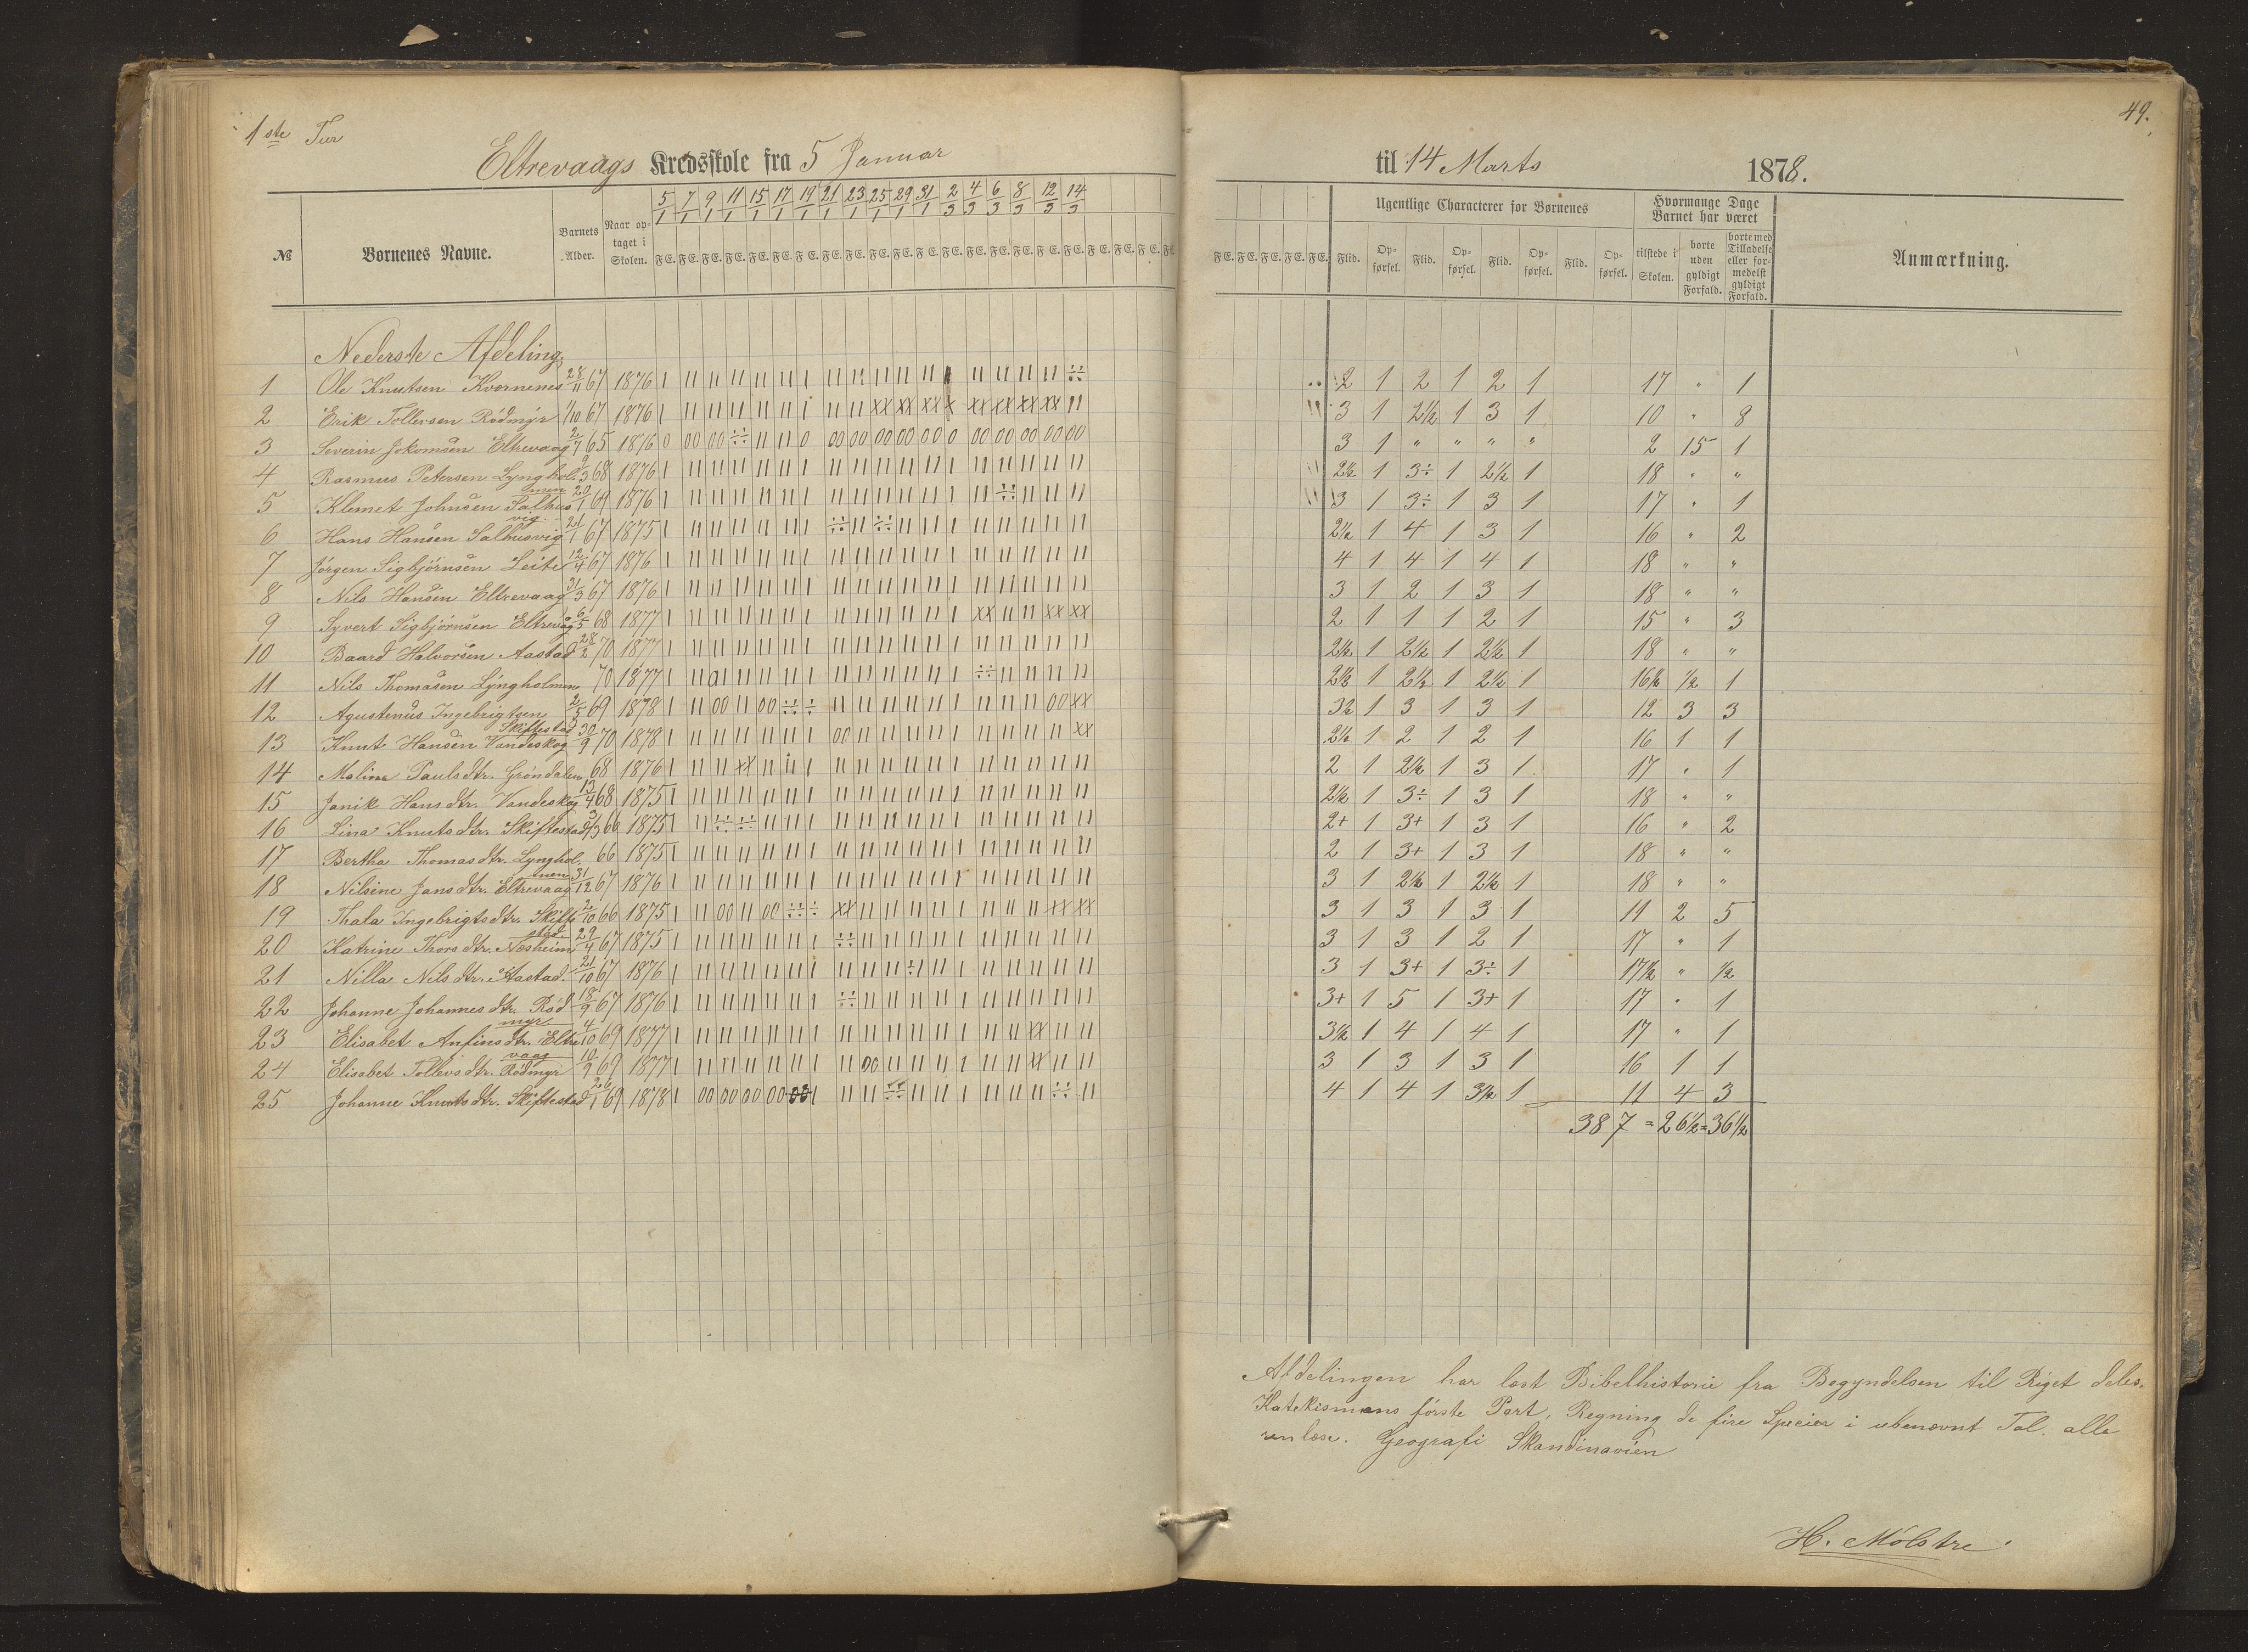 1ste Tur
Eltrevaags Kredsskole fra 5 Januar
5/1 7/1 9/1 11/1 15/1 17/1 19/1 21/1 23/1 25/1 29/1 31/1 2/3 4/3 6/3 8/3 12/3 14/3
№ Børnenes Navne. Barnets Alder. Naar optaget i Skolen. F.E. F.E. F.E. F.E. F.E. F.E. F.E. F.E. F.E. F.E. F.E. F.E. F.E. F.E. F.E. F.E. F.E. F.E. F.E. F.E. F.E.
Nederste Afdeling
1 Ole Knutsen Kvornenes 28/11 67 1876
2 Erik Tollevsen Rödmyr 1/10 67 1876
3 Severin Jokomsen Eltrevaag 2/7 65 1876
4 Rasmus Petersen Lyngholmen 9/3 68 1876
5 Klemet Johnsen Salhusvig 20/1 69 1876
6 Hans Hansen Salhusvig 21/1 67 1875
7 Jörgen Sigbjörnsen Leite 12/4 67 1876
8 Nils Hansen Eltrevaag 31/3 67 1876
9 Syvert Sigbjörnsen Eltrevåg 6/5 68 1877
10 Baard Halvorsen Aastad 28/2 70 1877
11 Nils Thomasen Lyngholmen 70 1877
12 Agustenus Ingebrigtsen Skiftestad 2/5 69 1878
13 Knut Hansen Vandeskog 30/9 70 1878
14 Maline Paulsdtr. Gröndalen 68 1876
15 Janik Hansdtr. Vandeskog 13/4 68 1875
16 Lina Knutsdtr. Skiftestad 3/3 66 1875
17 Bertha Thomasdtr. Lyngholmen 66 1875
18 Nilsine Jansdtr. Eltrevaag 31/12 67 1876
19 Thala Ingebrigtsdtr. Skiftestad 2/10 66 1875
20 Katrine Thorsdtr. Næsheim 29/4 67 1875
21 Nilla Nilsdtr. Aastad. 21/10 67 1876
22 Johanne Johannesdtr. Rödmyr 18/9 67 1876
23 Elisabet Anfinsdtr. Eltrevaag 4/10 69 1877
24 Elisabet Tollevsdtr. Rödmyr 10/9 69 1877
25 Johanne Knutsdtr. Skiftestad 26/1 69 1878
49.
til 14 Marts 1878.
F.E. F.E. F.E. F.E. F.E. Ugentlige Characterer for Børnenes Hvormange Dage Barnet har været
Flid. Opførsel. Flid. Opførsel. Flid. Opførsel. Flid. Opførsel. tilstede i Skolen. borte uden gyldigt Forfald. borte med Tilladelse eller formedelst gyldigt Forfald. Anmærkning.
2 1 2 1 2 1 17 " 1
3 1 2½ 1 3 1 10 " 8
3 1 " " " " 2 15 1
2½ 1 3÷ 1 2½ 1 18 " "
3 1 3÷ 1 3 1 17 " 1
2½ 1 4 1 3 1 16 " 2
4 1 4 1 4 1 18 " "
3 1 2 1 3 1 18 " "
2 1 1 1 2 1 15 " 3
2½ 1 2½ 1 2½ 1 18 " "
2½ 1 2½ 1 2½ 1 16½ ½ 1
3½ 1 3 1 3 1 12 3 3
2½ 1 2 1 2 1 16 1 1
2 1 2½ 1 3 1 17 " 1
2½ 1 3÷ 1 3 1 18 " "
2+ 1 3+ 1 3 1 16 " 2
2 1 3+ 1 3 1 18 " "
3 1 2½ 1 2½ 1 18 " "
3 1 3 1 3 1 11 2 5
3 1 3 1 2 1 17 " 1
3 1 3+ 1 3÷ 1 17½ " ½
3+ 1 5 1 3+ 1 17 " 1
3½ 1 4 1 4 1 17 " 1
3 1 3 1 3 1 16 1 1
4 1 4 1 3½ 1 11 4 3
387 = 26½ = 36½
Afdelingen har læst Bibelhistorie fra Begyndelsen til Riget deles.
Katekismens förste Part, Regning de fire Specier i ubenævnt Tal. alle
læse. Geografi Skandinavien
H. Mölstre